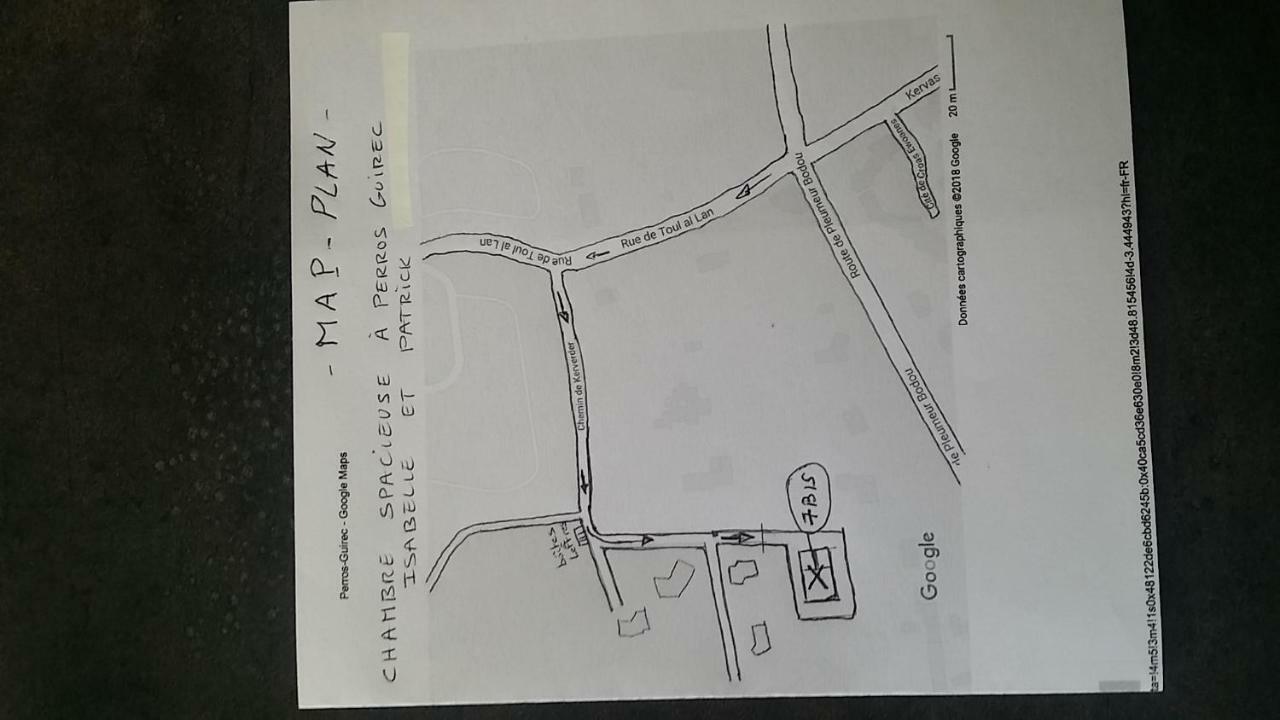 - MAP - PLAN -
Perros-Guirec - Google Maps
CHAMBRE SPACIEUSE À PERROS GUIREC
ISABELLE ET PATRICK
Rue de Toul al Lan
Rue de Toul al Lan
Chemin de Kerverder
boîtes
Lettres
Route de Pleumeur Bodou
Pleumeur Bodou
Kervas
Cité de Croas Ewanes
7BIS
Google
Données cartographiques ©2018 Google 20 m
ta=!4m5!3m4!1s0x48122de6cbd6245b:0x40ca5cd36e630e0!8m2!3d48.815456!4d-3.444943?hl=fr-FR